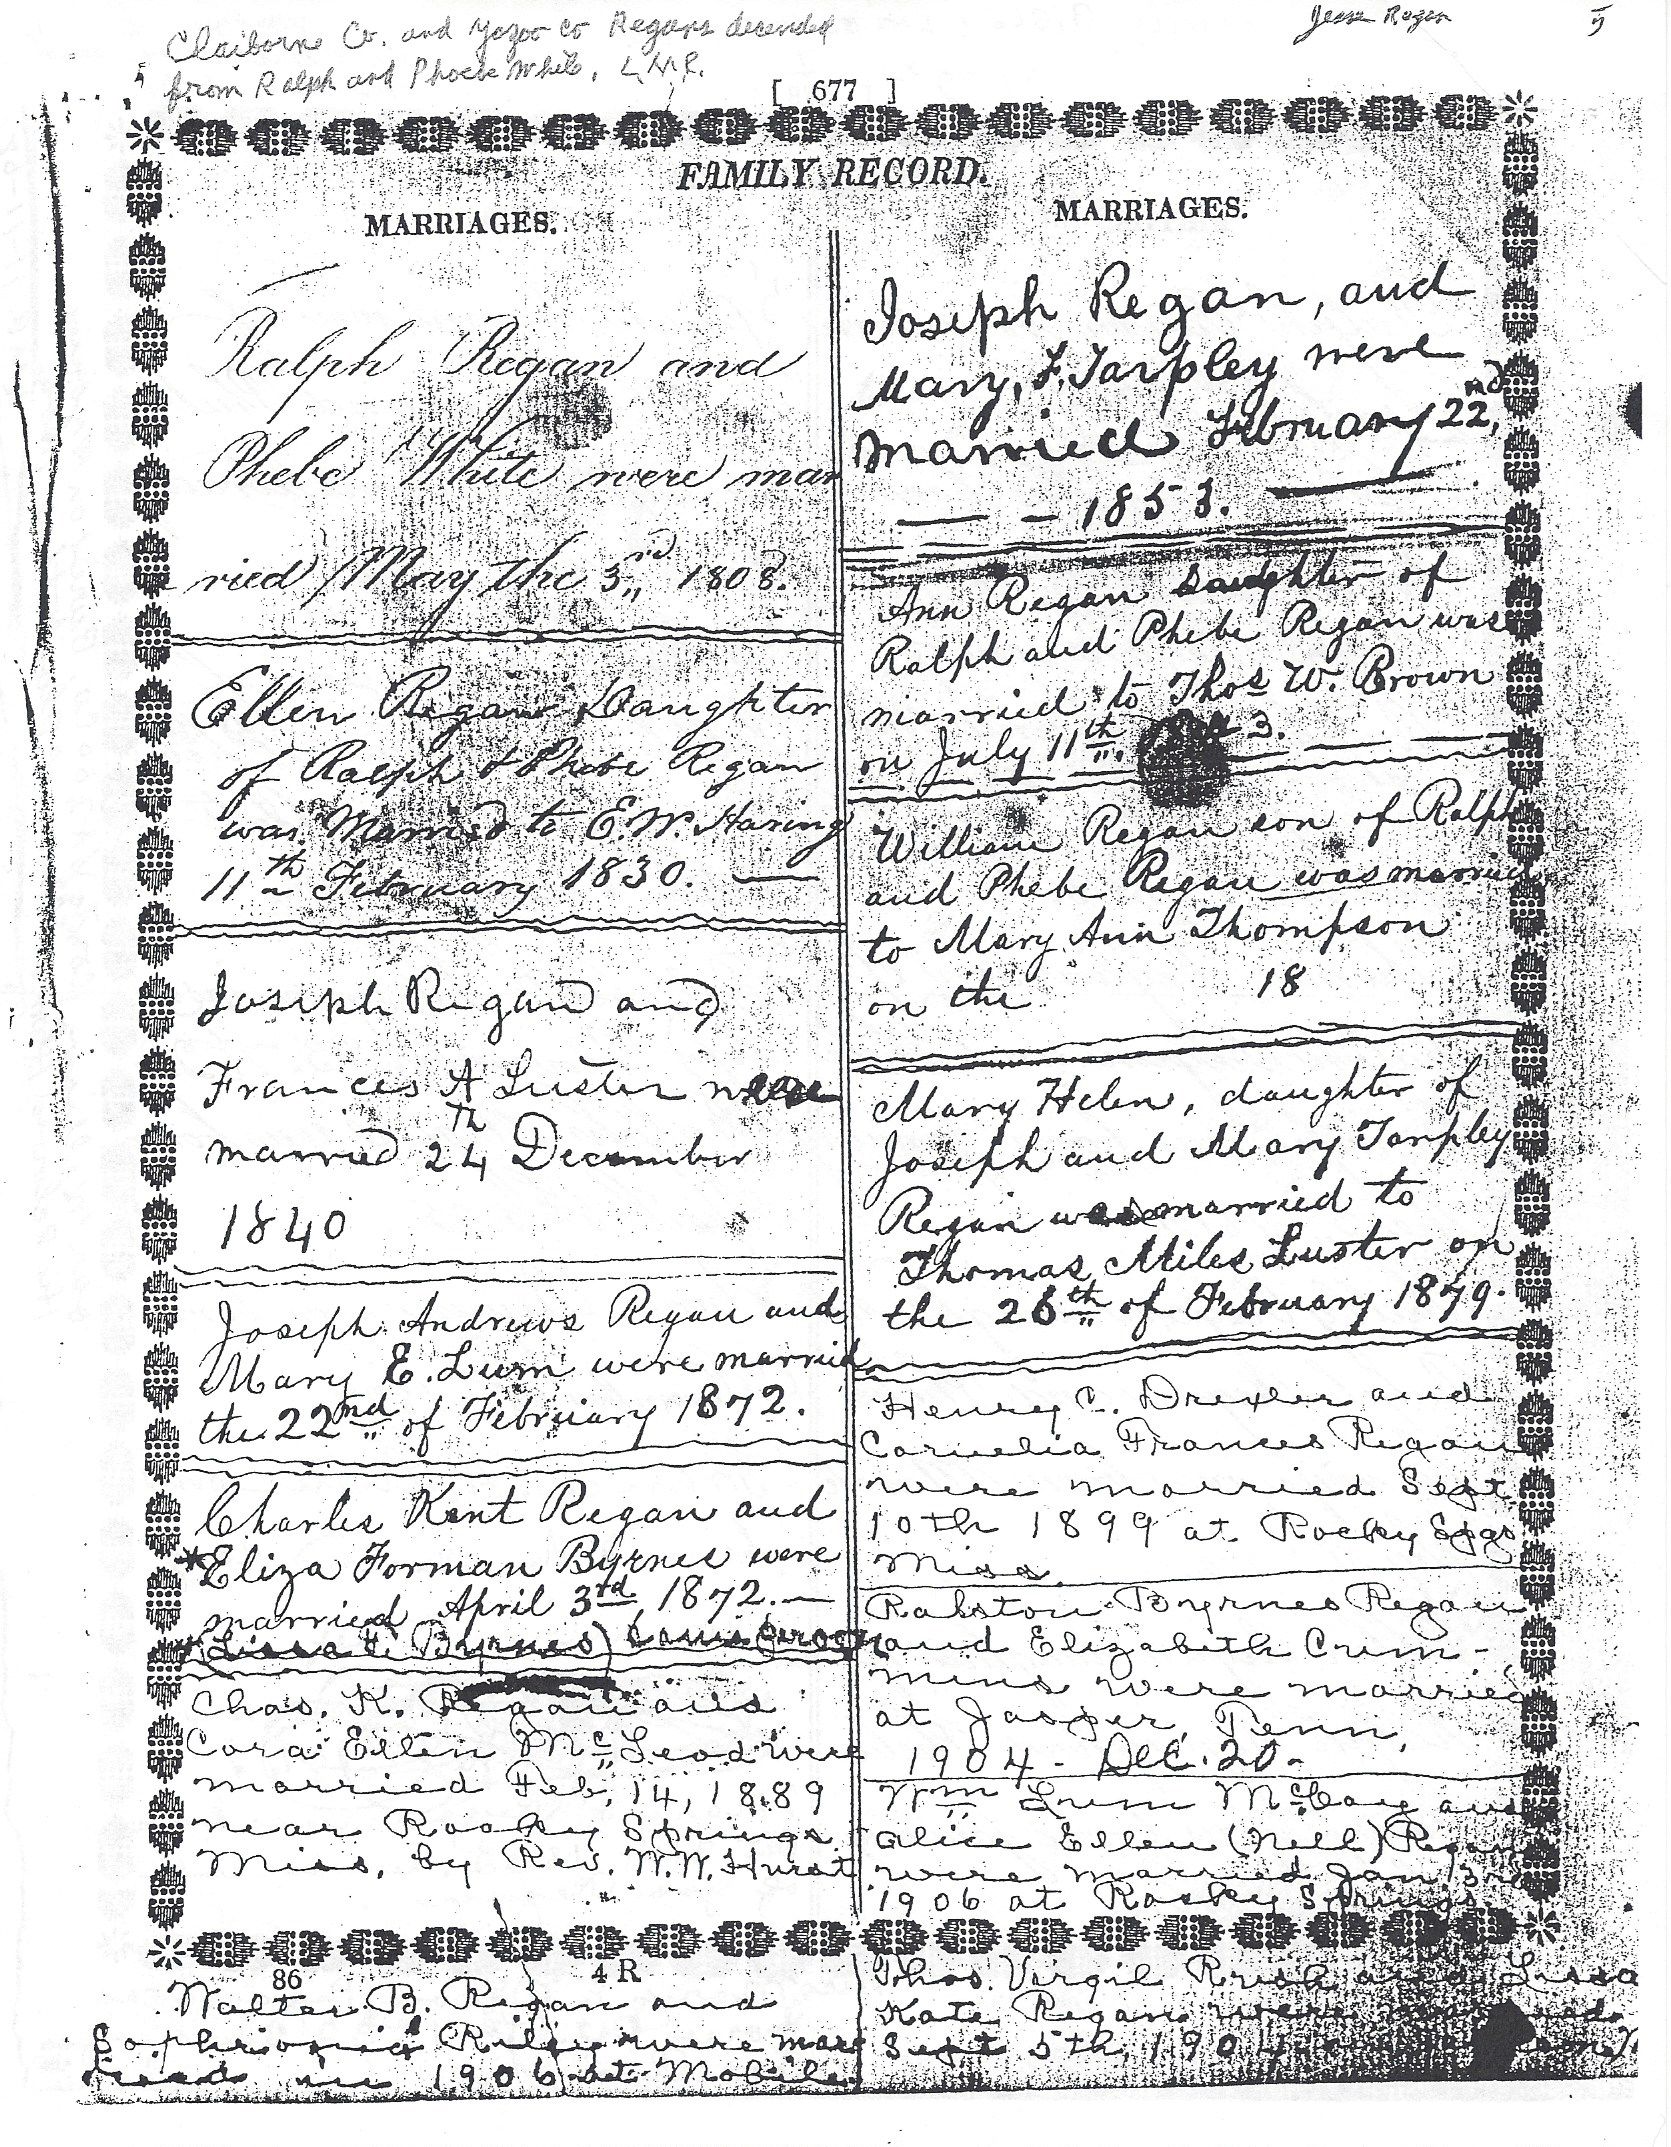 Claiborne Co. and Yazoo Co Regans decended
from Ralph and Phoebe White. L.N.R.
Jesse Regan
[ 677 ]
FAMILY RECORD.
MARRIAGES.
Ralph Regan and
Phebe White were mar
ried May the 3rd 1808.
Ellen Regan Daughter
of Ralph & Phebe Regan
was Married to E. W. Haring
11th February 1830.
Joseph Regan and
Frances A Luster were
married 24th December
1840
Joseph Andrews Regan and
Mary E. Lum were married
the 22nd of February 1872.
Charles Kent Regan and
*Eliza Forman Byrnes were
married April 3rd, 1872.
Byrnes)
Chas. K. Regan and
Cora Ellen McLeod were
married Feb, 14, 1889
near Rocky Springs
Miss, by Rev. W. W. Hurst
MARRIAGES.
Joseph Regan, and
Mary, F. Tarpley were
married February 22nd,
1853.
Ann Regan daughter of
Ralph and Phebe Regan was
married to Thos W. Brown
on July 11th. 3.
William Regan son of Ralph
and Phebe Regan was married
to Mary Ann Thompson
on the 18
Mary Helen, daughter of
Joseph and Mary Tarpley
Regan was married to
Thomas Miles Luster on
the 26th of February 1879.
Henry C. Drexler and
Cornelia Frances Regan
were married Sept.
10th 1899 at Rocky Spgs
Miss.
Ralston Byrnes Regan
and Elizabeth Cum-
mins were married
at Jasper, Tenn,
1904 - Dec. 20 -
Wm Lum McCay and
Alice Ellen (Nell) Regan
were married Jan 3rd
1906 at Rocky Springs
86
4 R
Walter B. Regan and
Sophronia Riley were mar
ried in 1906 at Mobile
Thos. Virgil Rush and Lissa
Kate Regan were
Sept 5th, 1904